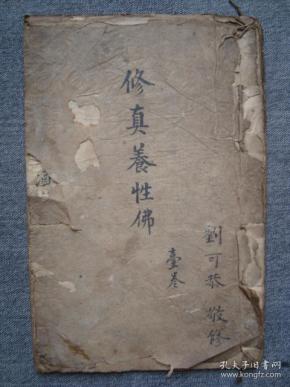 修真養性佛
臺卷
劉可恭敬修
孔夫子旧书网